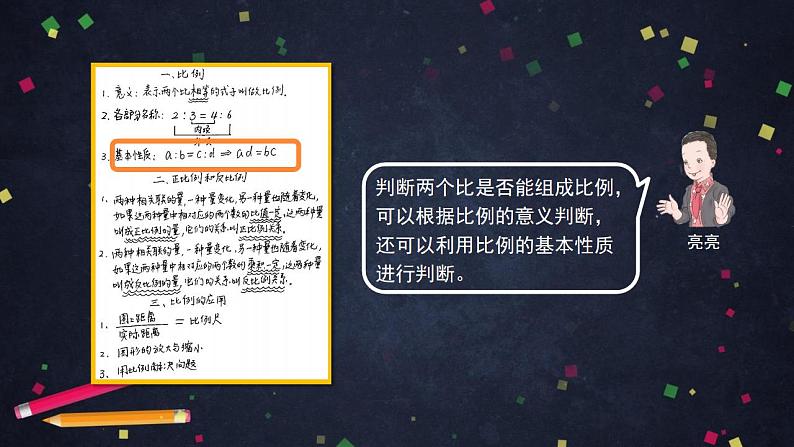 一、比例
1. 意义：表示两个比相等的式子叫做比例。
2. 各部分名称： 2 : 3 = 4 : 6
内项
3. 基本性质： a:b=c:d ⇒ ad=bc
二、正比例和反比例
1、两种相关联的量，一种量变化，另一种量也随着变化，
如果这两种量中相对应的两个数的比值一定，这两种量
叫做成正比例的量，它们的关系叫正比例关系。
2、两种相关联的量，一种量变化，另一种量也随着变化，
如果这两种量中相对应的两个数的乘积一定，这两种量
叫做成反比例的量，它们的关系叫反比例关系。
三、比例的应用
1、 图上距离 = 比例尺
实际距离
2、 图形的放大与缩小
3、 用比例解决问题
判断两个比是否能组成比例，
可以根据比例的意义判断，
还可以利用比例的基本性质
进行判断。
亮亮